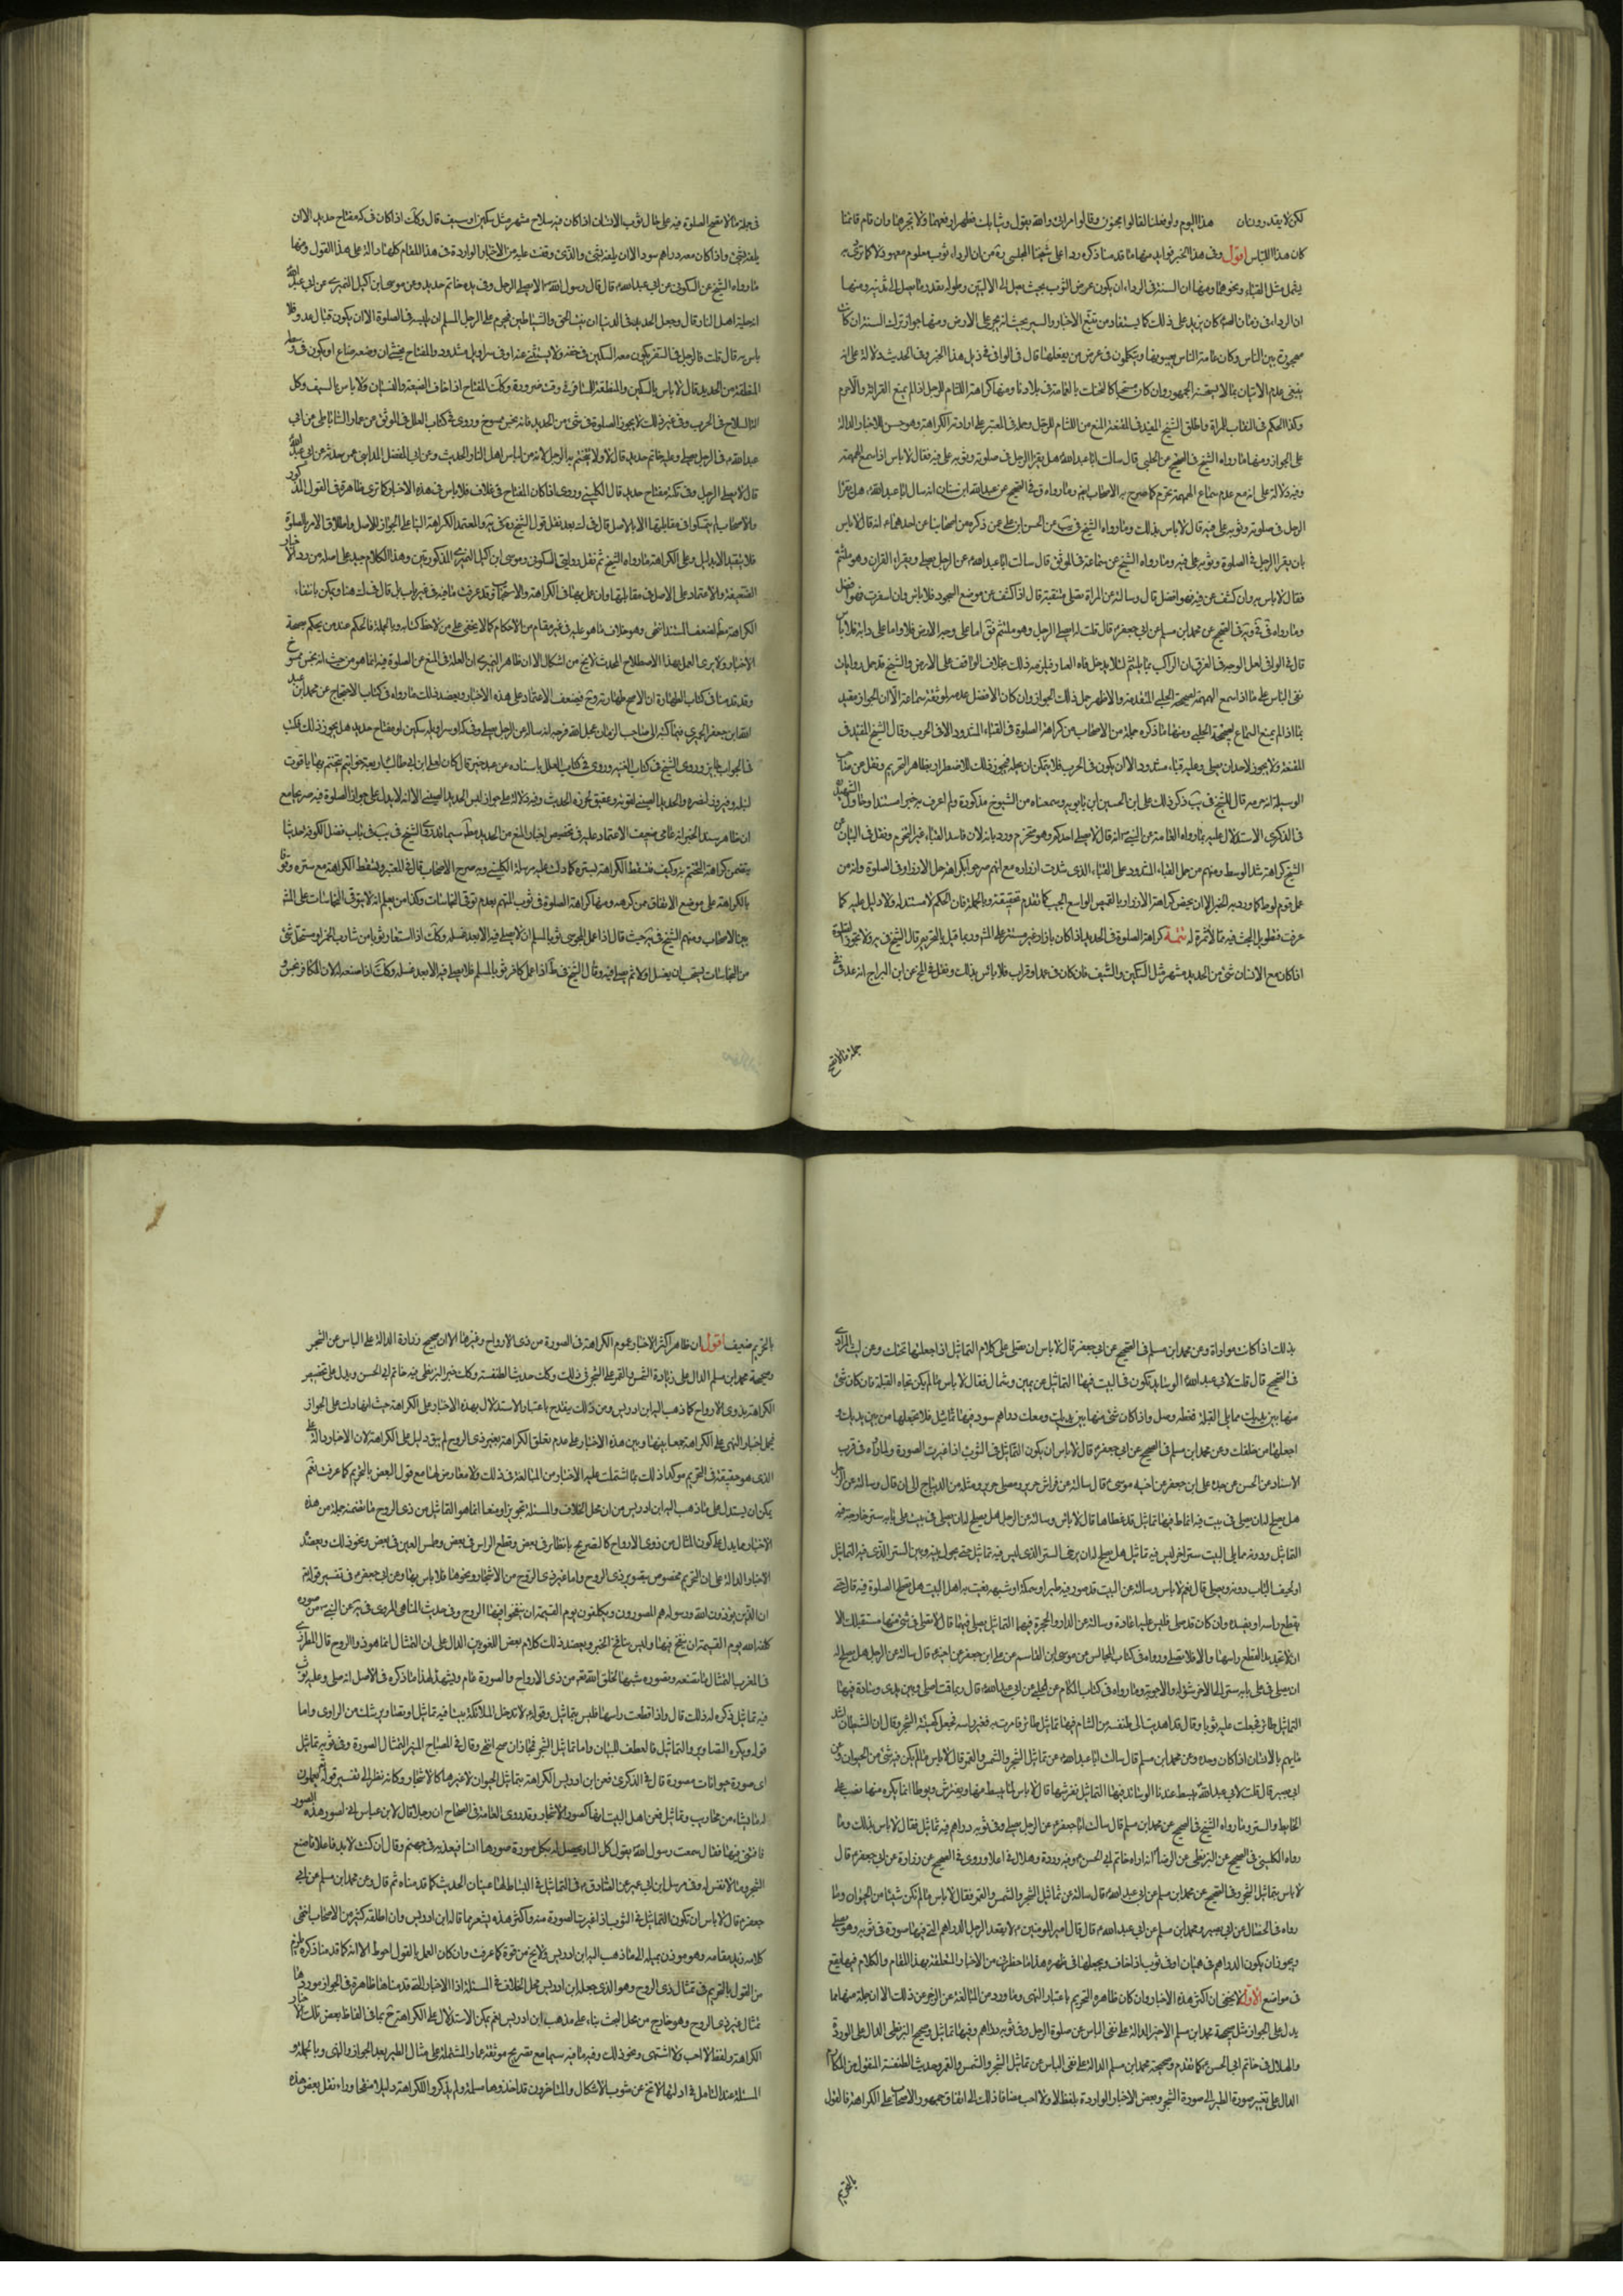 لكن لا يقدرون ان هذا اليوم ولو فعلنا لقالوا مجنون وقالوا مرائي والله يقول وثيابك فطهر اي فعها ولا تجرها وان قام قائمنا
كان هذا اللباس اقول وفي هذا الخبر فوايد منها ما قدمنا ذكره ردا على شيخنا المجلسي ره من ان الرداء ثوب معلوم معهود
يشمل مثل القباء ونحوها ومنها ان السنة في الرداء ان يكون عرض الثوب بحيث يصل الى الاليتين وطوله بقدر ما يصل الى
ان الرداء في زمان الصدر كان يزيد على ذلك كما يستفاد من تتبع الاخبار والسير بحيث انه يجر على الارض ومنها جواز ترك السنة ان كان
مهجورة بين الناس وكان عامة الناس يعيبونها ويتكلمون في عرض من يفعلها قال في الوافي في ذيل هذا الخبر وفي الحديث دلالة على انه
ينبغي عدم الاتيان بما لا يستحسنه الجمهور وان كان مستحبا كالتحنك بالعمامة في بلادنا ومنها كراهة اللثام للرجل اذا لم يمنع القرائة والا حرم
وكذا الحكم في النقاب للمراة واطلق الشيخ المفيد في المقنعة المنع من اللثام للرجل وحمله في المعتبر على ارادته الكراهة وهو حسن للاخبار الدالة
على الجواز ومنها ما رواه الشيخ في الصحيح عن الحلبي قال سالت ابا عبد الله هل يقرا الرجل في صلوته وثوبه على فيه فقال لا باس اذا سمع الهمهمة
وفيه دلالة على انه مع عدم سماع الهمهمة يحرم كما صرح به الاصحاب ايضا وما رواه في الصحيح عن عبد الله ابن سنان انه سال ابا عبد الله هل يقرا
الرجل في صلوته وثوبه على فيه قال لا باس بذلك وما رواه الشيخ في يب عن الحسن ابن علي عمن ذكره من اصحابنا عن احدهما انه قال لا باس
بان يقرا الرجل في الصلوة وثوبه على فيه وما رواه الشيخ عن سماعة في الموثق قال سالت ابا عبد الله عن الرجل يصلي ويقراء القران وهو ملثم
فقال لا باس به وان كشف عن فيه فهو افضل قال وسالته عن المراة تصلي متنقبة قال اذا كشف عن موضع السجود فلا باس وان اسفرت فهو افضل
وما رواه في الصحيح عن محمد ابن مسلم عن ابي جعفر قال قلت له ايصلي الرجل وهو ملثم فقال اما على وجه الارض فلا واما على دابة فلا باس
قال في الوافي لعل الوجه في الفرق ان الراكب ربما يلثم لئلا يدخل فاه الغبار فيلزمه ذلك بخلاف الواقف على الارض والشيخ قد حمل روايات
نفي الباس على ما اذا سمع الهمهمة لصحيحة الحلبي المتقدمة والاظهر حمل ذلك الجواز وان كان الافضل عدمه لموثقة سماعة الا ان الجواز مقيد
بما اذا لم يمنع السماع لصحيحة الحلبي ومنها ما ذكره جملة من الاصحاب من كراهة الصلوة في القباء المشدود الا في الحرب وقال الشيخ المفيد في
المقنعة ولا يجوز لاحد ان يصلي وعليه قباء مشدود الا ان يكون في الحرب فلا يتمكن ان يحله فيجوز ذلك للاضطرار وظاهره التحريم ونقل عن صاحب
الوسيلة انه حرمه قال الشيخ في يب ذكر ذلك علي ابن الحسين ابن بابويه وسمعناه من الشيوخ مذاكرة ولم اعرف به خبرا مسندا وحاول الشهيد
في الذكرى الاستدلال عليه بما رواه العامة عن النبي انه قال لا يصلي احدكم وهو محزم ورد بانه لان فاسد القباء غير التحزم ونقل في البيان عن
الشيخ كراهة شد الوسط ومنهم من حمل القباء المشدود على القباء الذي شدت ازراره مع انهم صرحوا بكراهة حل الازرار في الصلوة وانه من
عمل قوم لوط كما ورد به الخبر الا ان بعض كراهة الازرار بالقميص الواسع الجيب كما تقدم تحقيقه وبالجملة فان الحكم لا مستند له ولا دليل عليه كما
عرفت فتطويل البحث فيه مما لا ثمرة له تتمة كراهة الصلوة في الحديد اذا كان بارزا وغير مستتر على المشهور وربما قيل بالتحريم قال الشيخ في يه ولا يجوز الصلوة
اذا كان مع الانسان شئ من الحديد مشهر مثل السكين والسيف فان كان في غمد او قراب فلا باس بذلك ونقل في المخ عن ابن البراج انه عد في
جملة ما لا تصح
في جملة ما لا تصح الصلوة فيه على حال ثوب الانسان اذا كان فيه سلاح مشهر مثل سكين او سيف قال وكذلك اذا كان في كمه مفتاح حديد الا ان
يلفه بشئ واذا كان معه دراهم سود الا ان يلفه بشئ والذي وقفت عليه من الاخبار الواردة في هذا المقام كلها دالة على هذا القول ومنها
ما رواه الشيخ عن السكوني عن ابي عبد الله قال قال رسول الله لا يصلي الرجل وفي يده خاتم حديد وعن موسى ابن اكيل النميري عن ابي عبد الله
انه حلية اهل النار قال وجعل الحديد في الدنيا زينة الجن والشياطين فحرم على الرجل المسلم ان يلبسه في الصلوة الا ان يكون قبال عدو فلا
باس به قال قلت فالرجل في السفر يكون معه السكين في خفه لا يستغني عنه او في سراويله مشدودا والمفتاح يخشى ان وضعه ضاع او يكون في وسطه
المنطقة من الحديد قال لا باس بالسكين والمنطقة للمسافر في وقت ضرورة وكذلك المفتاح اذا خاف الضيعة والنسيان ولا باس بالسيف وكل
الة السلاح في الحرب وفي غير ذلك لا يجوز الصلوة في شئ من الحديد فانه نجس ممسوخ وروى في كتاب العلل في الموثق عن عمار الساباطي عن ابي
عبد الله في الرجل يصلي وعليه خاتم حديد قال لا ولا يتختم به الرجل لانه من لباس اهل النار الحديث وعن ابي الفضل المدايني عمن حدثه عن ابي عبد الله
قال لا يصلي الرجل وفي تكته مفتاح حديد قال الكليني وروى اذا كان المفتاح في غلاف فلا باس وهذه الاخبار كما ترى ظاهرة في القول المذكور
والاصحاب لم يتمسكوا في مقابلتها الا بالاصل قال في ك بعد نقل قول الشيخ والمعتمد الكراهة لنا على الجواز الاصل واطلاق الامر بالصلوة
فلا يتقيد الا بدليل وعلى الكراهة ما رواه الشيخ ثم نقل روايتي السكوني وموسى ابن اكيل النميري المذكورتين وهذا الكلام جيد على اصله من رد الاخبار
الضعيفة والاعتماد على الاصل في مقابلتها وان عمل بها في الكراهة والاستحباب وقد عرفت ما فيه في غير باب بل قال في ك هنا ويمكن بانتفاء
الكراهة مط لضعف المستند انتهى وهو خلاف ما هو عليه في غير مقام من الاحكام كما لا يخفى على من لاحظ كتابه وبالجملة فالحكم عند من يحكم بصحة
الاخبار ولا يرى العمل بهذا الاصطلاح المحدث لا يخ من اشكال الا ان ظاهر النميري ان العلة في المنع عن الصلوة فيه انما هو من حيث انه نجس ممسوخ
وقد قدمنا في كتاب الطهارة ان الاصح طهارته وح فيضعف الاعتماد على هذه الاخبار ويعضد ذلك ما رواه في كتاب الاحتجاج عن محمد ابن عبد
الله ابن جعفر الحميري فيما كتبه الى صاحب الزمان عجل الله فرجه انه ساله عن الرجل يصلي وفي كمه او سراويله سكين او مفتاح حديد هل يجوز ذلك فكتب
في الجواب جايز وروى الشيخ في كتاب الغيبة وروى في كتاب العلل باسناده عن عبد خير قال كان لعلي ابن ابي طالب اربعة خواتيم يتختم بها ياقوت
لنبله وفيروزج لنصره والحديد الصيني لقوته وعقيق لحرزه الحديث وفيه دلالة على جواز لبس الحديد الصيني الا انه لا يدل على جواز الصلوة فيه صريحا مع
ان ظاهر سند الخبر انه عامي ضعيف الاعتماد عليه في تخصيص اخبار المنع من الحديد مط سيما وقد روى الشيخ في يب في باب فضل الكوفة حديثا
يتضمن كراهة التختم به وكيف فتسقط الكراهة بستره كما دلت عليه مرسلة الكليني وبه صرح الاصحاب قال في المعتبر وتسقط الكراهة مع ستره وقوفا
بالكراهة على موضع الاتفاق ممن كرهه ومنها كراهة الصلوة في ثوب المتهم بعدم توقي النجاسات وكذا من يعلم انه لا يتوقى النجاسات على المشهور
بين الاصحاب ومنهم الشيخ في يه حيث قال اذا عمل المجوسي ثوبا لمسلم ان لا يصلي فيه الا بعد غسله وكذلك اذا استعار ثوبا من شارب الخمر او مستحل شئ
من النجاسات يستحب ان يغسل اولا ثم يصلي فيه وقال الشيخ في ط اذا عمل كافر ثوبا لمسلم فلا يصلي فيه الا بعد غسله وكذلك اذا صبغه له لان الكافر نجس و
بذلك اذا كان مواراة وعن محمد ابن مسلم في الصحيح عن ابي جعفر قال لا باس ان تصلي على كلام التماثيل اذا جعلتها تحتك وعن ليث المرادي
في الصحيح قال قلت لابي عبد الله الوسائد تكون في البيت فيها التماثيل عن يمين وشمال فقال لا باس ما لم يكن تجاه القبلة فان كان شئ
منها بين يديك مما يلي القبلة فغطه وصل واذا كان شئ منها بين يديك ومعك دراهم سود فيها تماثيل فلا تجعلها من بين يديك و
اجعلها من خلفك وعن محمد ابن مسلم في الصحيح عن ابي جعفر قال لا باس ان يكون التماثيل في الثوب اذا غيرت الصورة وما رواه في قرب
الاسناد عن الحسن عن جده علي ابن جعفر عن اخيه موسى قال سالته عن فراش حرير ومصلى حرير ومثله من الديباج الى ان قال وسالته عن الرجل
هل يصلح له ان يصلي في بيت فيه انماط فيها تماثيل قد غطاها قال لا باس وسالته عن الرجل هل يصلح له ان يصلي في بيت على بابه ستر خارجه فيه
التماثيل ودونه مما يلي البيت ستر اخر ليس فيه تماثيل هل يصلح له ان يرخي الستر الذي ليس فيه تماثيل حتى يحول بينه وبين الستر الذي فيه التماثيل
او يجيف الباب دونه ويصلي قال نعم لا باس وسالته عن البيت قد صور فيه طير او سمكة او شبهه يعبث به اهل البيت هل تصلح الصلوة فيه قال حتى
يقطع راسه او يفسده وان كان قد صلى فليس عليه اعادة وسالته عن الدار والحجرة فيها التماثيل يصلي فيها قال لا تصلي في شئ منها مستقبلك الا
ان لا تجد بدا فتقطع راسها والا فلا تصلي ورواه في كتاب المحاسن عن موسى ابن القاسم عن علي ابن جعفر عن اخيه قال سالته عن الرجل هل يصلح له
ان يصلي في
التماثيل طائر فجعلت عليه ثوبا وقال قد اهديت الى طنفسة من الشام فيها تماثيل طائر فامرت به فغير راسه فجعل كهيئة الشجر وقال ان الشيطان اشد
ما يهم بالانسان اذا كان وحده وعن محمد ابن مسلم قال سالت ابا عبد الله عن تماثيل الشجر والشمس والقمر قال لا باس ما لم يكن فيه شئ من الحيوان وعن
ابي بصير قال قلت لابي عبد الله يبسط عندنا الوسائد فيها التماثيل نفرشها قال لا باس بما يبسط منها ويفترش ويوطا انما يكره منها نصب على
الحايط والستر وما رواه الشيخ في الصحيح عن محمد ابن مسلم قال سالت ابا جعفر عن الرجل يصلي وفي ثوبه دراهم فيه تماثيل فقال لا باس بذلك وما
رواه الكليني في الصحيح عن البزنطي عن الرضا انه اراه خاتم ابي الحسن وفيه وردة وهلال في اعلاه وروى في الصحيح عن زرارة عن ابي جعفر قال
لا باس بتماثيل الشجر وفي الصحيح عن محمد ابن مسلم عن ابي عبد الله قال سالته عن تماثيل الشجر والشمس والقمر فقال لا باس ما لم تكن شيئا من الحيوان وما
رواه في الخصال عن ابي بصير ومحمد ابن مسلم عن ابي عبد الله قال قال امير المومنين لا يعقد الرجل الدراهم التي فيها صورة في ثوبه وهو يصلي
ويجوز ان يكون الدراهم في هميان او في ثوب اذا خاف ويجعلها في ظهره هذا ما حظرني من الاخبار المتعلقة بهذا المقام والكلام فيها يقع
في مواضع الاول لا يخفى ان اكثر هذه الاخبار وان كان ظاهره التحريم باعتبار النهي وما ورد من المبالغة عن الزجر عن ذلك الا ان جملة منها مما
يدل على الجواز مثل صحيحة محمد ابن مسلم الاخيرة الدالة على نفي الباس عن صلوة الرجل وفي ثوبه دراهم وفيها تماثيل وصحيح البزنطي الدال على الوردة
والهلال في خاتم ابي الحسن كما تقدم وصحيحة محمد ابن مسلم الدالة على نفي الباس عن تماثيل الشجر والشمس والقمر وحديث الطنفسة المنقول من المكارم
الدال على تغيير صورة الطير الى صورة الشجر وبعض الاخبار الواردة بلفظ لا ولا احب مضافا ذلك الى اتفاق جمهور الاصحاب على الكراهة فالقول
بالتحريم
بالتحريم ضعيف اقول ان ظاهر اكثر الاخبار عموم الكراهة في الصورة من ذي الارواح وغيرها الا ان صحيح زرارة الدالة على الباس عن الشجر
وصحيحة محمد ابن مسلم الدال على زيادة الشمس والقمر على الشجر في ذلك وكذلك حديث الطنفسة وكذلك خبر البزنطي فيه خاتم ابي الحسن ويدل على تخصيص
الكراهة بذوي الارواح كما ذهب اليه ابن ادريس ومن ذلك ينقدح باعتبار الاستدلال بهذه الاخبار على الكراهة حيث انها دلت على الجواز
فيحمل اخبار النهي على الكراهة جمعا بينها وبين هذه الاخبار وعلى عدم تعلق الكراهة بغير ذي الروح لم يبق دليل على الكراهة لان الاخبار دالة على
الذي هو حقيقة في التحريم موكدا ذلك بما اشتملت عليه الاخبار من المبالغة في ذلك ولا معارض لها مع قول البعض بالتحريم كما عرفت نعم
يمكن ان يستدل على ما ذهب اليه ابن ادريس من ان محل الخلاف والمسئلة تجويزا ومنعا انما هو التماثيل من ذي الروح ما تضمنه جملة من هذه
الاخبار مما يدل على كون المثال من ذوي الارواح كالتصريح بالطائر في بعض وقطع الراس في بعض وطمس العين في بعض ونحو ذلك ويعضده
الاخبار الدالة على ان التحريم مخصوص بتصوير ذي الروح واما غير ذي الروح من الاشجار ونحوها فلا باس بها وعن ابي جعفر في تفسير قوله تعالى
ان الذين يوذون الله ورسوله هم المصورون ويكلفون يوم القيمة ان ينفخوا فيها الروح وفي حديث المناهي المروي في يه عن النبي من صور صورة
كلفه الله يوم القيمة ان ينفخ فيها وليس بنافخ الخبر ويعضد ذلك كلام بعض اللغويين الدال على ان التمثال انما هو ذو الروح قال المطرزي
في المغرب التمثال ما تصنعه وتصوره شبها بخلق الله من ذي الارواح والصورة عام ويشهد لهذا ما ذكره في الاصل انه صلى وعليه ثوب
فيه تماثيل ذكره له ذلك قال واذا قطعت راسها فليس بتماثيل وقوله لا تدخل الملائكة بيتا فيه تماثيل او تصاوير شك من الراوي واما
قوله ويكره التصاوير والتماثيل فالعطف للبيان واما تماثيل الشجر فمجاز ان صح انتهى وقال في المصباح المنير التمثال الصورة وفي ثوبه تماثيل
اي صورة حيوانات مصورة قال في الذكرى فعن ابن ادريس الكراهة بتماثيل الحيوان لا غيرها كالاشجار وكانه نظر الى تفسير قوله تعالى يعملون
له ما يشاء من محاريب وتماثيل فعن اهل البيت انها كصور الاشجار وقد روى العامة في الصحاح ان رجلا قال لابن عباس اني اصور هذه الصور
فافتني فيها فقال سمعت رسول الله يقول كل
الشجر وما لا نفس له وفي مرسل ابن ابي عمير عن الصادق في التماثيل في البساط لها عينان الحديث كما قدمناه ثم قال وعن محمد ابن مسلم عن ابي
جعفر قال لا باس ان تكون التماثيل في الثوب اذا غيرت الصورة منه واكثر هذه يشعر بما قاله ابن ادريس وان اطلقه كثير من الاصحاب انتهى
كلامه زيد مقامه وهو موذن بميله الى ما ذهب اليه ابن ادريس ولا يخ من قوة كما عرفت وان كان العمل بالقول احوط الا انه كما قدمنا ذكره يلزم
من القول بالتحريم في تمثال ذي الروح وهو الذي جعله ابن ادريس محل الخلاف في المسئلة اذ الاخبار التي قدمناها ظاهرة في الجواز موردها
تمثال غير ذي الروح وهو خارج من محل البحث بناء على مذهب ابن ادريس نعم يمكن الاستدلال على الكراهة ح بما في الفاظ بعض تلك الاخبار
الكراهة ولفظ لا احب ولا اشتهي ونحو ذلك وفيه ما فيه سيما مع تصريح موثقة عمار المشتملة على مثال الطير بعد الجواز والنهي وبالجملة و
المسئلة عند التامل في ادلتها لا تخ عن شوب الاشكال والمتاخرون قد اخذوها مسلمة ولم يذكروا للكراهة دليلا منقحا وراء نقل بعض هذه